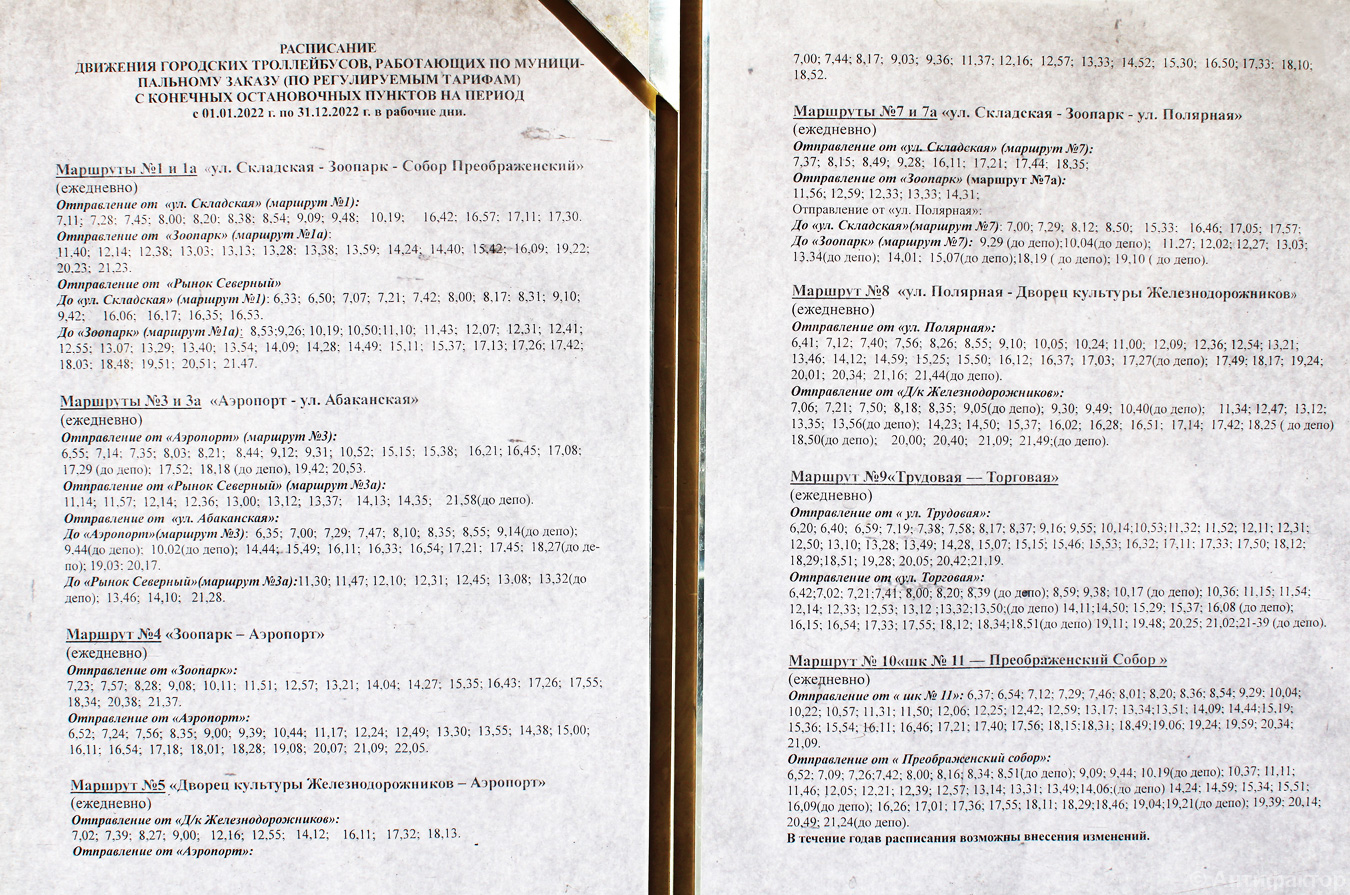 РАСПИСАНИЕ
ДВИЖЕНИЯ ГОРОДСКИХ ТРОЛЛЕЙБУСОВ, РАБОТАЮЩИХ ПО МУНИЦИ-
ПАЛЬНОМУ ЗАКАЗУ (ПО РЕГУЛИРУЕМЫМ ТАРИФАМ)
С КОНЕЧНЫХ ОСТАНОВОЧНЫХ ПУНКТОВ НА ПЕРИОД
с 01.01.2022 г. по 31.12.2022 г. в рабочие дни.
Маршруты №1 и 1а «ул. Складская - Зоопарк - Собор Преображенский»
(ежедневно)
Отправление от «ул. Складская» (маршрут №1):
7,11; 7,28; 7,45; 8,00; 8,20; 8,38; 8,54; 9,09; 9,48; 10,19; 16,42; 16,57; 17,11; 17,30.
Отправление от «Зоопарк» (маршрут №1а):
11,40; 12,14; 12,38; 13,03; 13,13; 13,28; 13,38; 13,59; 14,24; 14,40; 15,42; 16,09; 19,22;
20,23; 21,23.
Отправление от «Рынок Северный»
До «ул. Складская» (маршрут №1): 6,33; 6,50; 7,07; 7,21; 7,42; 8,00; 8,17; 8,31; 9,10;
9,42; 16,06; 16,17; 16,35; 16,53.
До «Зоопарк» (маршрут №1а): 8,53;9,26; 10,19; 10,50;11,10; 11,43; 12,07; 12,31; 12,41;
12,55; 13,07; 13,29; 13,40; 13,54; 14,09; 14,28; 14,49; 15,11; 15,37; 17,13; 17,26; 17,42;
18,03; 18,48; 19,51; 20,51; 21,47.
Маршруты №3 и 3а «Аэропорт - ул. Абаканская»
(ежедневно)
Отправление от «Аэропорт» (маршрут №3):
6,55; 7,14; 7,35; 8,03; 8,21; 8,44; 9,12; 9,31; 10,52; 15,15; 15,38; 16,21; 16,45; 17,08;
17,29 (до депо); 17,52; 18,18 (до депо), 19,42; 20,53.
Отправление от «Рынок Северный» (маршрут №3а):
11,14; 11,57; 12,14; 12,36; 13,00; 13,12; 13,37; 14,13; 14,35; 21,58(до депо).
Отправление от «ул. Абаканская»:
До «Аэропорт»(маршрут №3): 6,35; 7,00; 7,29; 7,47; 8,10; 8,35; 8,55; 9,14(до депо);
9,44(до депо); 10,02(до депо); 14,44; 15,49; 16,11; 16,33; 16,54; 17,21; 17,45; 18,27(до де-
по); 19,03; 20,17.
До «Рынок Северный»(маршрут №3а):11,30; 11,47; 12,10; 12,31; 12,45; 13,08; 13,32(до
депо); 13,46; 14,10; 21,28.
Маршрут №4 «Зоопарк – Аэропорт»
(ежедневно)
Отправление от «Зоопарк»:
7,23; 7,57; 8,28; 9,08; 10,11; 11,51; 12,57; 13,21; 14,04; 14,27; 15,35; 16,43; 17,26; 17,55;
18,34; 20,38; 21,37.
Отправление от «Аэропорт»:
6,52; 7,24; 7,56; 8,35; 9,00; 9,39; 10,44; 11,17; 12,24; 12,49; 13,30; 13,55; 14,38; 15,00;
16,11; 16,54; 17,18; 18,01; 18,28; 19,08; 20,07; 21,09; 22,05.
Маршрут №5 «Дворец культуры Железнодорожников – Аэропорт»
(ежедневно)
Отправление от «Д/к Железнодорожников»:
7,02; 7,39; 8,27; 9,00; 12,16; 12,55; 14,12; 16,11; 17,32; 18,13.
Отправление от «Аэропорт»:
7,00; 7,44; 8,17; 9,03; 9,36; 11,37; 12,16; 12,57; 13,33; 14,52; 15,30; 16,50; 17,33; 18,10;
18,52.
Маршруты №7 и 7а «ул. Складская - Зоопарк - ул. Полярная»
(ежедневно)
Отправление от «ул. Складская» (маршрут №7):
7,37; 8,15; 8,49; 9,28; 16,11; 17,21; 17,44; 18,35;
Отправление от «Зоопарк» (маршрут №7а):
11,56; 12,59; 12,33; 13,33; 14,31;
Отправление от «ул. Полярная»:
До «ул. Складская»(маршрут №7): 7,00; 7,29; 8,12; 8,50; 15,33; 16,46; 17,05; 17,57;
До «Зоопарк» (маршрут №7): 9,29 (до депо);10,04(до депо); 11,27; 12,02; 12,27; 13,03;
13,34(до депо); 14,01; 15,07(до депо);18,19 ( до депо); 19,10 ( до депо).
Маршрут №8 «ул. Полярная - Дворец культуры Железнодорожников»
(ежедневно)
Отправление от «ул. Полярная»:
6,41; 7,12; 7,40; 7,56; 8,26; 8,55; 9,10; 10,05; 10,24; 11,00; 12,09; 12,36; 12,54; 13,21;
13,46; 14,12; 14,59; 15,25; 15,50; 16,12; 16,37; 17,03; 17,27(до депо); 17,49; 18,17; 19,24;
20,01; 20,34; 21,16; 21,44(до депо).
Отправление от «Д/к Железнодорожников»:
7,06; 7,21; 7,50; 8,18; 8,35; 9,05(до депо); 9,30; 9,49; 10,40(до депо); 11,34; 12,47; 13,12;
13,35; 13,56(до депо); 14,23; 14,50; 15,37; 16,02; 16,28; 16,51; 17,14; 17,42; 18,25 ( до депо)
18,50(до депо); 20,00; 20,40; 21,09; 21,49;(до депо).
Маршрут №9«Трудовая — Торговая»
(ежедневно)
Отправление от « ул. Трудовая»:
6,20; 6,40; 6,59; 7,19; 7,38; 7,58; 8,17; 8,37; 9,16; 9,55; 10,14;10,53;11,32; 11,52; 12,11; 12,31;
12,50; 13,10; 13,28; 13,49; 14,28, 15,07; 15,15; 15,46; 15,53; 16,32; 17,11; 17,33; 17,50; 18,12;
18,29;18,51; 19,28; 20,05; 20,42;21,19.
Отправление от «ул. Торговая»:
6,42;7,02; 7,21;7,41; 8,00; 8,20; 8,39 (до депо); 8,59; 9,38; 10,17 (до депо); 10,36; 11,15; 11,54;
12,14; 12,33; 12,53; 13,12 ;13,32;13,50;(до депо) 14,11;14,50; 15,29; 15,37; 16,08 (до депо);
16,15; 16,54; 17,33; 17,55; 18,12; 18,34;18,51(до депо) 19,11; 19,48; 20,25; 21,02;21-39 (до депо).
Маршрут № 10«шк № 11 — Преображенский Собор »
(ежедневно)
Отправление от « шк № 11»: 6,37; 6,54; 7,12; 7,29; 7,46; 8,01; 8,20; 8,36; 8,54; 9,29; 10,04;
10,22; 10,57; 11,31; 11,50; 12,06; 12,25; 12,42; 12,59; 13,17; 13,34;13,51; 14,09; 14,44;15,19;
15,36; 15,54; 16,11; 16,46; 17,21; 17,40; 17,56; 18,15;18,31; 18,49;19,06; 19,24; 19,59; 20,34;
21,09.
Отправление от « Преображенский собор»:
6,52; 7,09; 7,26;7,42; 8,00; 8,16; 8,34; 8,51(до депо); 9,09; 9,44; 10,19(до депо); 10,37; 11,11;
11,46; 12,05; 12,21; 12,39; 12,57; 13,14; 13,31; 13,49;14,06;(до депо) 14,24; 14,59; 15,34; 15,51;
16,09(до депо); 16,26; 17,01; 17,36; 17,55; 18,11; 18,29;18,46; 19,04;19,21(до депо); 19,39; 20,14;
20,49; 21,24(до депо).
В течение годав расписания возможны внесения изменений.
© Антифактор